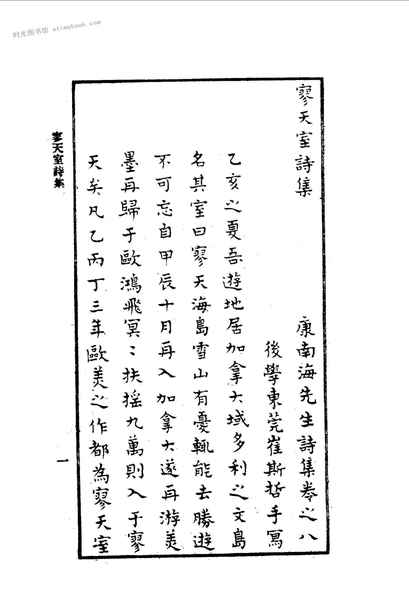 时光图书馆 etimebook.com
寥天室詩集
康南海先生詩集卷之八
後學東莞崔斯哲手寫
乙亥之夏吾遊地居加拿大域多利之文島
名其室曰寥天海島雪山有憂輒能去勝遊
不可忘自甲辰十月再入加拿大遂再游美
墨再歸于歐鴻飛冥〻扶摇九萬則入于寥
天矣凡乙丙丁三年歐美之作都為寥天室
寥天室詩集
一